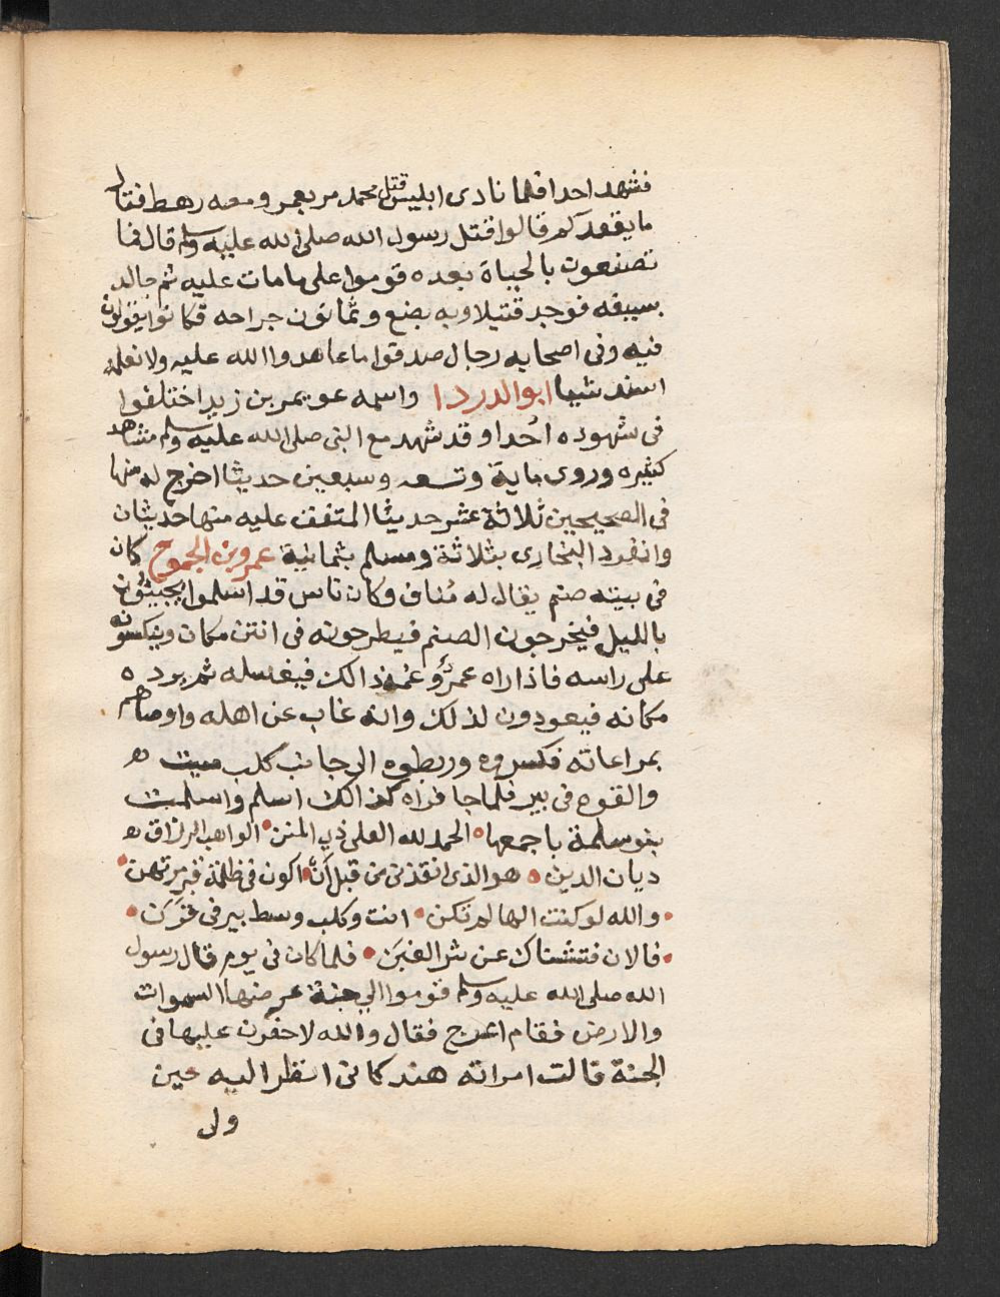 فشهد احدا فلما نادى ابليس قتل محمد مر بعمر ومعه رهط فقال
ما يقعدكم قالوا قتل رسول الله صلى الله عليه وسلم قال فما
تصنعون بالحياة بعده قوموا على ما مات عليه ثم جالد
بسيفه فوجد قتيلا وبه بضع وثمانون جراحه فكانوا يقولون
فيه وفى اصحابه رجال صدقوا ما عاهدوا الله عليه ولا نعلمه
اسند شيا ابوالدردا واسمه عويمر بن زيد اختلفوا
فى شهوده احُدا وقد شهد مع النبى صلى الله عليه وسلم مشاهد
كثيره وروى ماية وتسعه وسبعين حديثا اخرج له منها
فى الصحيحين ثلاثة عشر حديثا المتفق عليه منها حديثان
وانفرد البخارى بثلاثة ومسلم بثمانية عمرو بن الجموح كان
فى بيته صنم يقال له مُناف وكان ناس قد اسلموا يجيئون
بالليل فيخرجون الصنم فيطرحونه فى انتن مكان وينكسونه
على راسه فاذا راه عمرٌو غمه ذالك فيغسله ثم يرده
مكانه فيعودون لذلك وانه غاب عن اهله واوصاهم
بمراعاته فكسروه وربطوه الى جانب كلب ميت
والقوه فى بير فلما جا فراه كذالك اسلم واسلمت
بنو سلمة باجمعها الحمد لله العلى ذى المنن الواهب الرزاق
ديان الدين هو الذى انقذنى من قبل أن اكون فى ظلمة قبر مرتهن
والله لو كنت الها لم تكن انت وكلب وسط بير فى قرن
فالان فتشناك عن شر الغبَن فلما كان فى يوم قال رسول
الله صلى الله عليه وسلم قوموا الي جنة عرضها السموات
والارض فقام اعرج فقال والله لاحفزن عليها فى
الجنة قالت امراته هند كانى انظر اليه حين
ولى